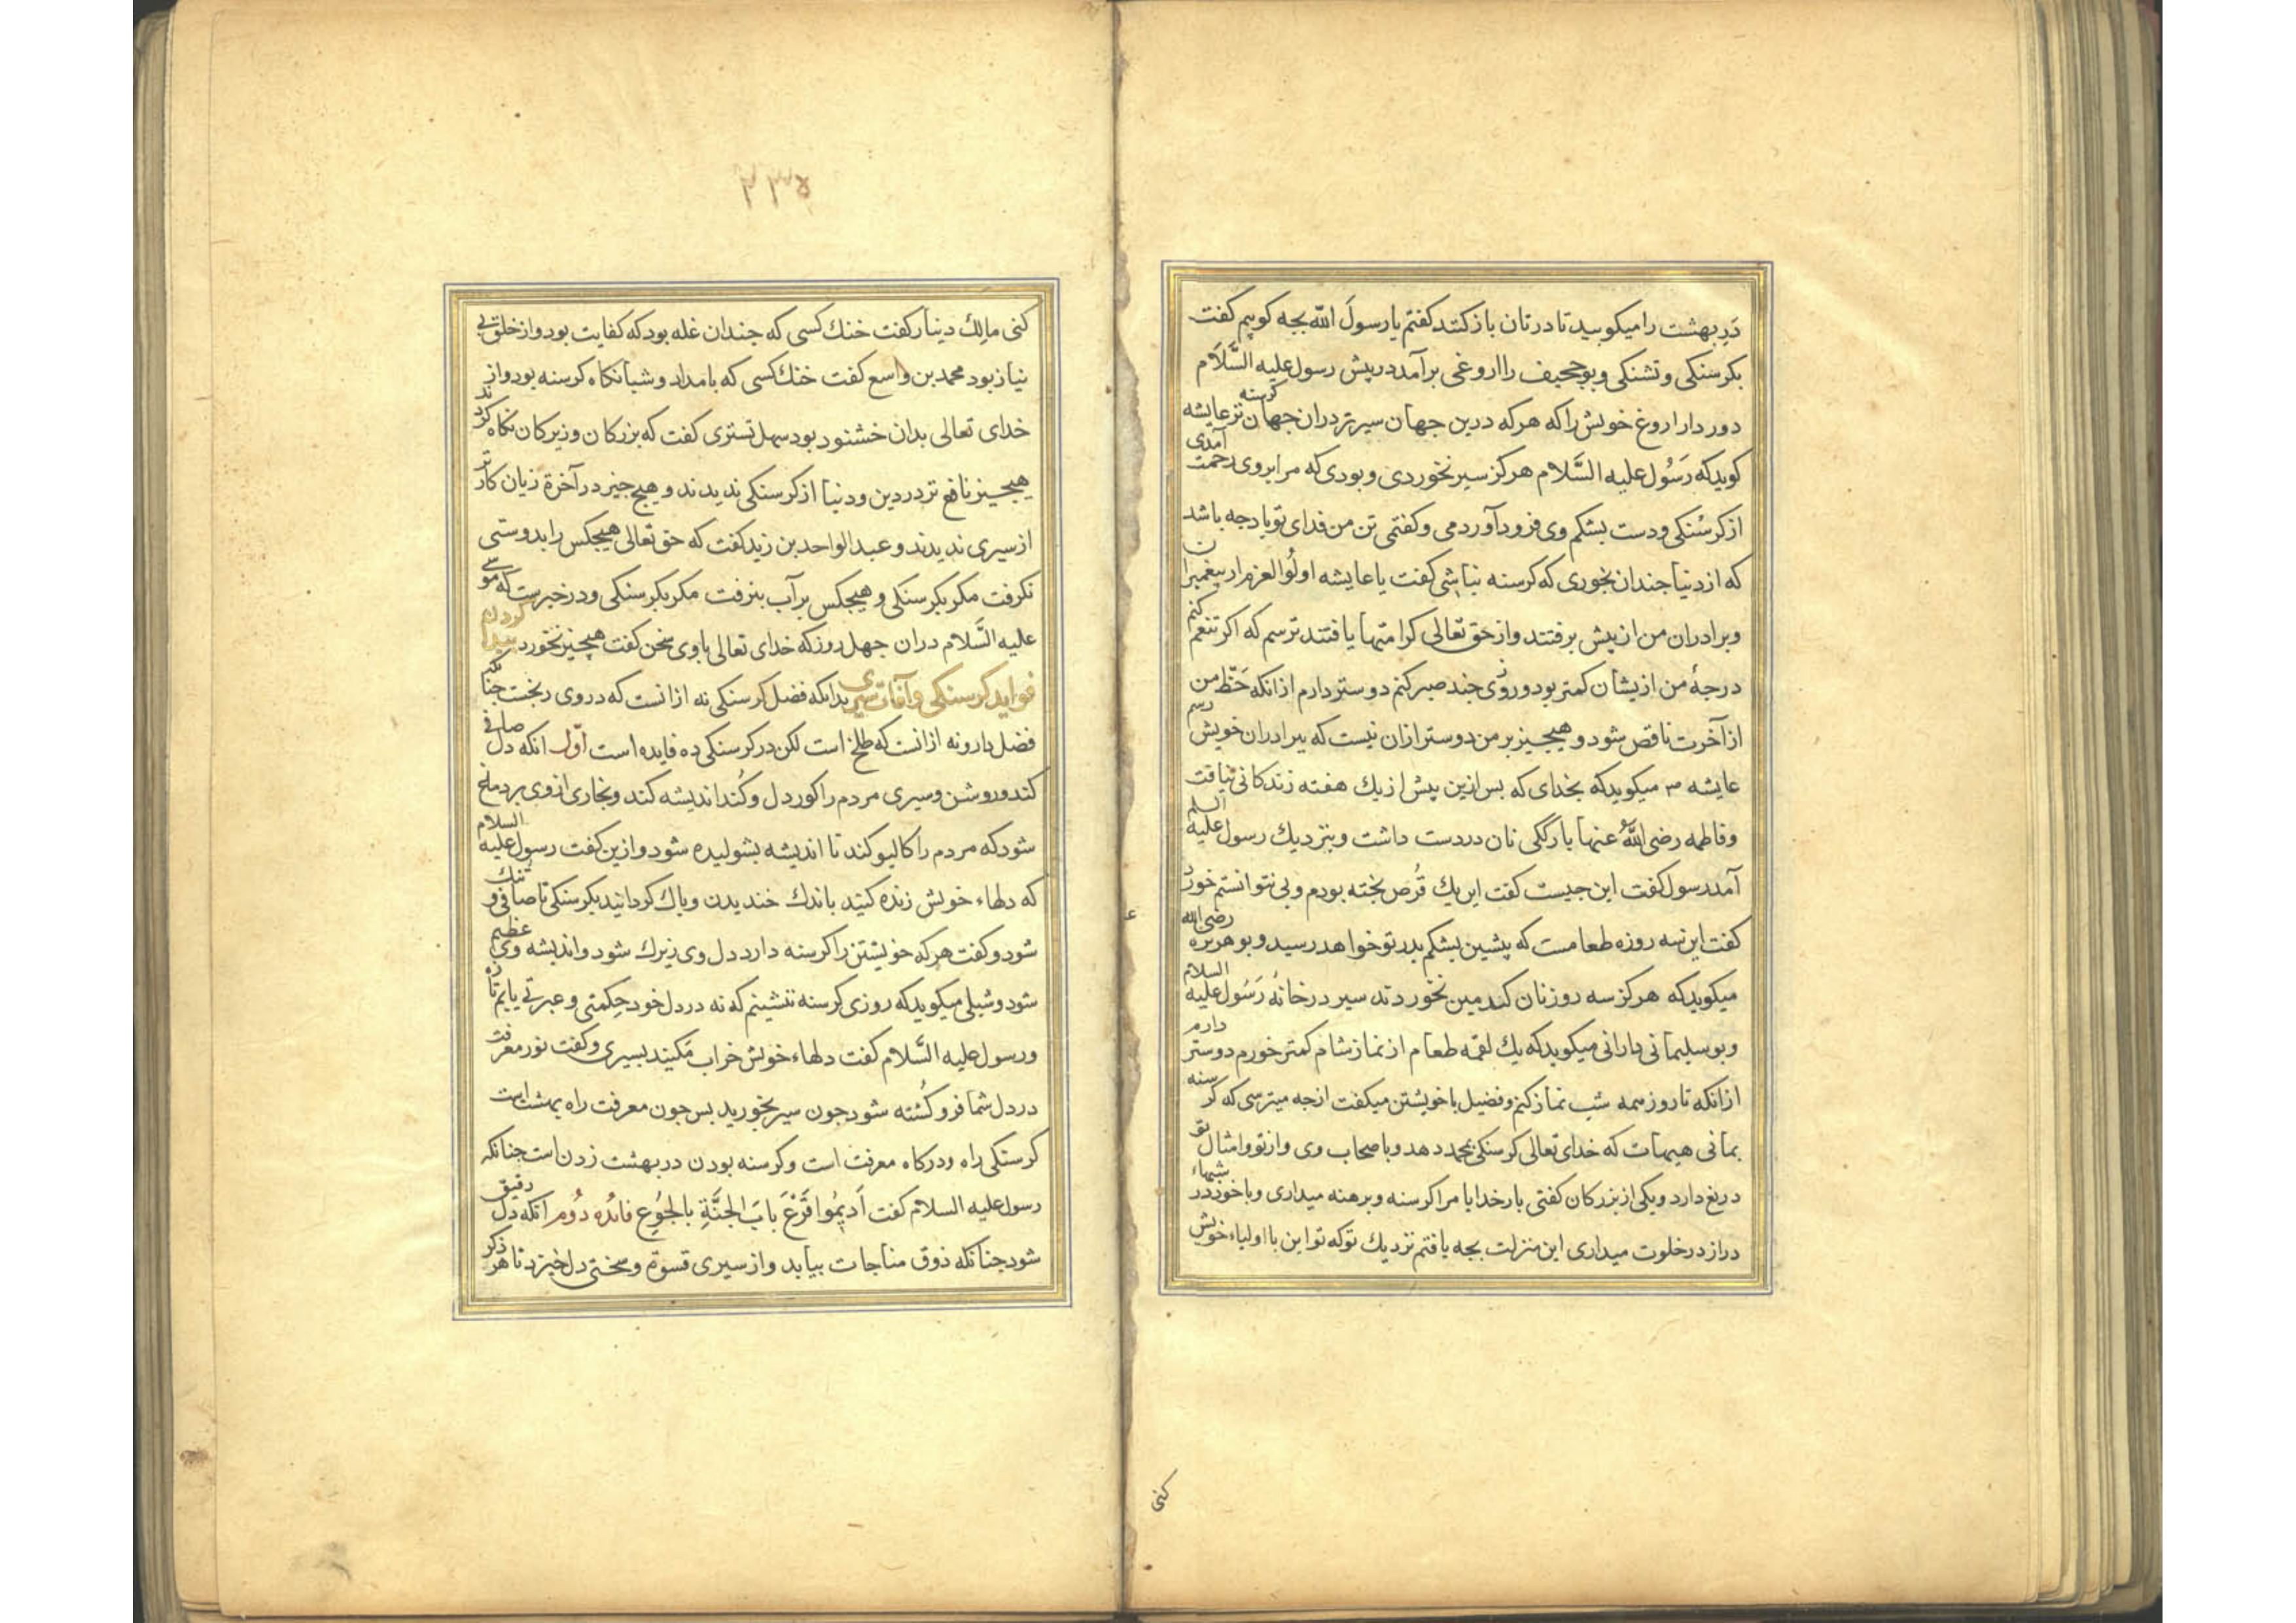 دَرِ بهشت را میکوبید تا درتان باز کنند کفتم یا رسولَ الله بجه کوبیم کفت
بکرسنکی و تشنکی و بوجحیف را اروغی برآمد در پیش رسول علیه السَّلَام
دور دار اروغ خویش را که هر که درین جهان سیرتر دران جهان کرسنه تر عایشه
کوید که رَسُول علیه السَّلام هرکز سیر نخوردی و بودی که مرا بروی رحمت آمدی
از کرسُنکی و دست بشکم وی فرود آوردمی و کفتمی تن من فدای تو باد جه باشد
که از دنیا جندان بخوری که کرسنه نباشی کفت یا عایشه اولُوا العزم از پیغمبران
و برادران من از پیش برفتند و از حق تعالی کرامتها یافتند ترسم که اکر تنعم کنم
درجهٔ من ازیشان کمتر بود و روزی جند صبر کنم دوستر دارم ازانکه حَظّ من
از آخرت ناقص شود و هیجیز بر من دوستر ازان نیست که ببرادران خویش رسم
عایشه میکوید که بخدای که بس ازین پیش از یك هفته زندکانی نیافت
و فاطمه رضی اللهُ عنها بارککی نان در دست داشت و بنزدیك رسول علیه السلم
آمد رسول کفت این جیست کفت این یك قُرص بخته بودم و بی تو نتوانستم خورد
کفت این سه روزه طعامست که پشین بشکم بدر تو خواهد رسید و بوهریره رضی الله
میکوید که هرکز سه روز نان کندمین نخوردند سیر در خانهٔ رَسُول علیه السلام
و بوسلیمانی دارانی میکوید که یك لقمه طعام از نماز شام کمتر خورم دوستر دارم
ازانکه تا روز همه شب نماز کنم و فضیل با خویشتن میکفت از جه میترسی که کرسنه
بمانی هیهات که خدای تعالی کرسنکی بمحمد دهد و باصحاب وی و از تو و امثال تو
دریغ دارد و یکی از بزرکان کفتی بار خدایا مرا کرسنه و برهنه میداری و با خود در شبهاء
دراز در خلوت میداری این منزلت بجه یافتم نزدیك تو که تو این با اولیاء خویش
کنی
۲۳۵
کنی مالِك دینار کفت خنك کسی که جندان غله بود که کفایت بود و از خلق بی
نیاز بود محمد بن واسع کفت خنك کسی که بامداد و شبانکاه کرسنه بود و از
خدای تعالی بدان خشنود بود سهل تستری کفت که بزرکان و زیرکان نکاه کردند
هیجیز نافع تر در دین و دنیا از کرسنکی ندیدند و هیج جیز در آخرة زیان کارتر
از سیری ندیدند و عبدالواحد بن زید کفت که حق تعالی هیجکس را بدوستی
نکرفت مکر بکرسنکی و هیجکس بر آب بنرفت مکر بکرسنکی و در خبرست که موسی
علیه السَّلام دران جهل روز که خدای تعالی با وی سخن کفت هیجیز نخورد پیدا کردن
فواید کرسنکی و آفات سیری بدانکه فضل کرسنکی نه ازانست که در وی رنجست جنانکه
فضل دارو نه ازانست که طلخ است لکن در کرسنکی ده فایده است اوّل انکه دل صافی
کند و روشن و سیری مردم را کوردل و کُند اندیشه کند و بخاری از وی بر دماغ
شود که مردم را کالیو کند تا اندیشه بشولیده شود و ازین کفت رسول علیه السلام
که دلهاء خویش زنده کنید باندك خندیدن و باك کردانید بکرسنکی تا صافی و تنك
شود و کفت هر که خویشتن را کرسنه دارد دل وی زیرك شود و اندیشه وی عظیم
شود و شبلی میکوید که روزی کرسنه ننشینم که نه در دل خود حِکمتی و عبرتی یابم تازه
و رسول علیه السَّلام کفت دلهاء خویش خراب مَکنید بسیری و کفت نور معرفت
در دل شما فرو کُشته شود جون سیر بخورید بس جون معرفت راه بهشت است
کرسنکی راه و درکاه معرفت است و کرسنه بودن در بهشت زدن است جنانکه
رسول علیه السلام کفت اَدیمُوا قَرْعَ بابَ الجَنَّةِ بالجُوعِ فائده دُوم انکه دل رقیق
شود جنانکه ذوق مناجات بیابد و از سیری قسوة و سختی دل خیزد تا هر ذکر